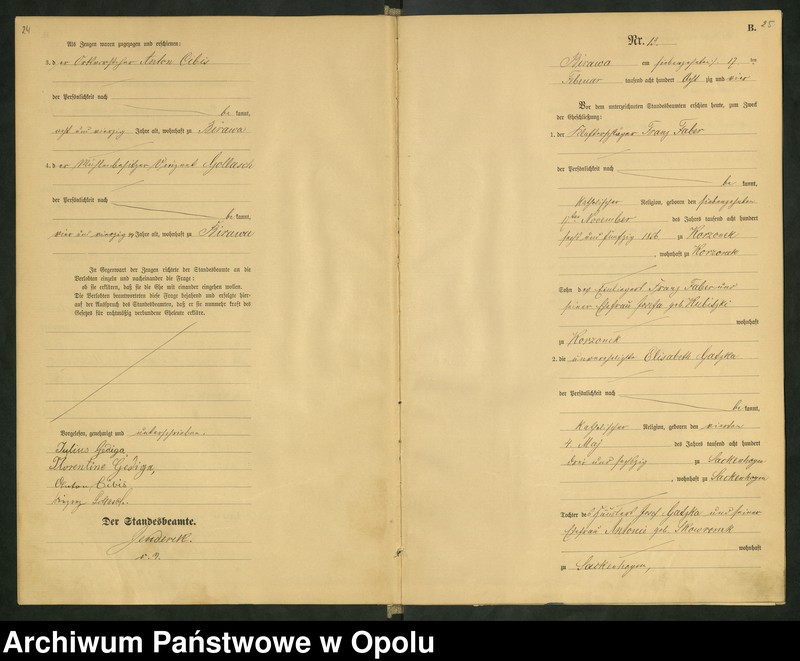 24
Als Zeugen waren zugezogen und erschienen:
3. der Anton Cebis
der Persönlichkeit nach
be kannt,
und vierzig Jahre alt, wohnhaft zu Birawa
4. der Mühlenbesitzer Vinzent
der Persönlichkeit nach
be kannt,
vier und vierzig Jahre alt, wohnhaft zu Birawa
In Gegenwart der Zeugen richtete der Standesbeamte an die
Verlobten einzeln und nacheinander die Frage:
ob sie erklären, daß sie die Ehe mit einander eingehen wollen.
Die Verlobten beantworteten diese Frage bejahend und erfolgte hier-
auf der Ausspruch des Standesbeamten, daß er sie nunmehr kraft des
Gesetzes für rechtmäßig verbundene Eheleute erkläre.
Vorgelesen, genehmigt und unterschrieben.
Julius Gediga
Florentine Gediga,
Anton Cebis
Der Standesbeamte.
B. 25
Nr. 12.
Birawa am siebenzehnten 17 ten
Februar tausend acht hundert Acht zig und vier
Vor dem unterzeichneten Standesbeamten erschienen heute, zum Zweck
der Eheschließung:
1. der Franz Faber
der Persönlichkeit nach
be kannt,
katholischer Religion, geboren den siebenzehnten
17ten November des Jahres tausend acht hundert
sechs und fünfzig 1856 zu Korzonek
, wohnhaft zu Korzonek
Sohn des Franz Faber und
seiner Ehefrau Josefa geb.
wohnhaft
zu Korzonek
2. die unverehelichte Elisabeth Gatzka
der Persönlichkeit nach
be kannt,
katholischer Religion, geboren den vierten
4 Mai des Jahres tausend acht hundert
drei und sechszig zu Sackenhoym
, wohnhaft zu Sackenhoym
Tochter des Häusler Josef Gatzka und seiner
Ehefrau Antonie geb. Skowronek
wohnhaft
zu Sackenhoym,
Archiwum Państwowe w Opolu